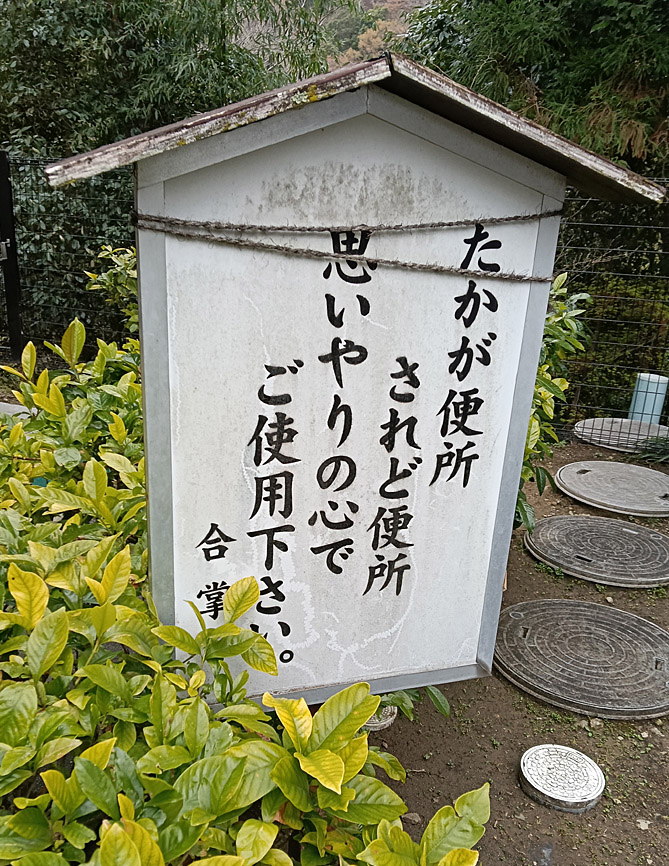 たかが便所
されど便所
思いやりの心で
ご使用下さい。
合掌